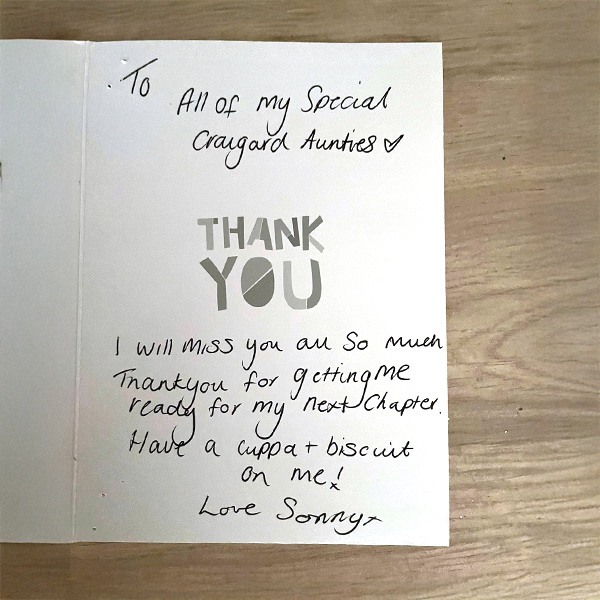 To
All of my Special
Craigard Aunties ♡
THANK
YOU
I will miss you all so much
Thankyou for getting me
ready for my next Chapter.
Have a cuppa + biscuit
on me!
Love Sonny x